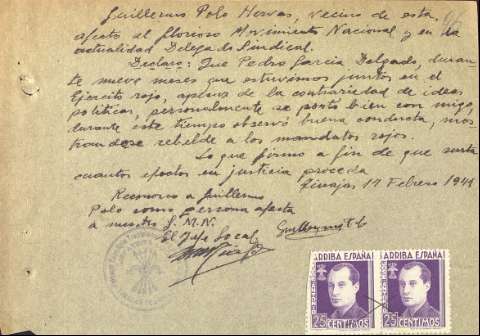 Guillermo Polo Hervas, vecino de esta,
afecto al glorioso Movimiento Nacional y en la
actualidad Delegado Sindical.
Declaro: Que Pedro Garcia Delgado, duran-
te nueve meses que estuvimos juntos en el
Ejercito rojo, apesar de la contrariedad de ideas
politicas, personalmente se portó bien con migo,
durante éste tiempo observó buena conducta, mos
trandose rebelde a los mandatos rojos.
Lo que firmo a fin de que surta
cuantos efectos en justicia proceda
17 Febrero 1941
Reconozco a Guillermo
Polo como persona afecta
a nuestro G. M. N.
El Jefe Local
Guillermo Polo
ARRIBA ESPAÑA
25 CENTIMOS
ARRIBA ESPAÑA
25 CENTIMOS